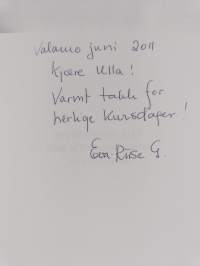 Valamo juni 2011
Kjære Ulla!
Varmt takk for
herlige kursdager!
Eva Riise G.